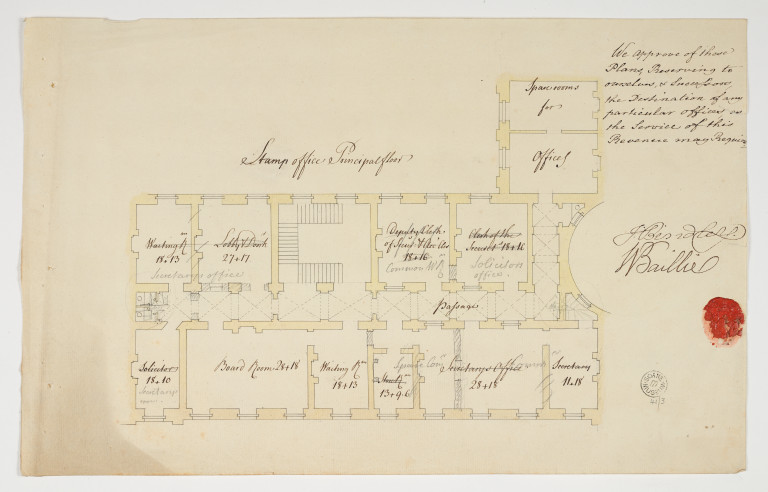 We approve of these
Plans, Reserving to
ourselves, & Successors
the Destination of any
particular offices as
the Service of this
Revenue may Require
Stamp office Principal floor
Spare rooms
for
Offices
Waiting Rm
18+13
Secretarys office
Lobby & Desk
27+17
18+16
Common W Rm
Clerk of the
18+16
Solicitors
office.
Passage
Solicitor
18+10
Board Room 28+18
Waiting Rm
18+13
13+9.6
Secretarys Office
28+18
Secretary
11+18
W Baillie